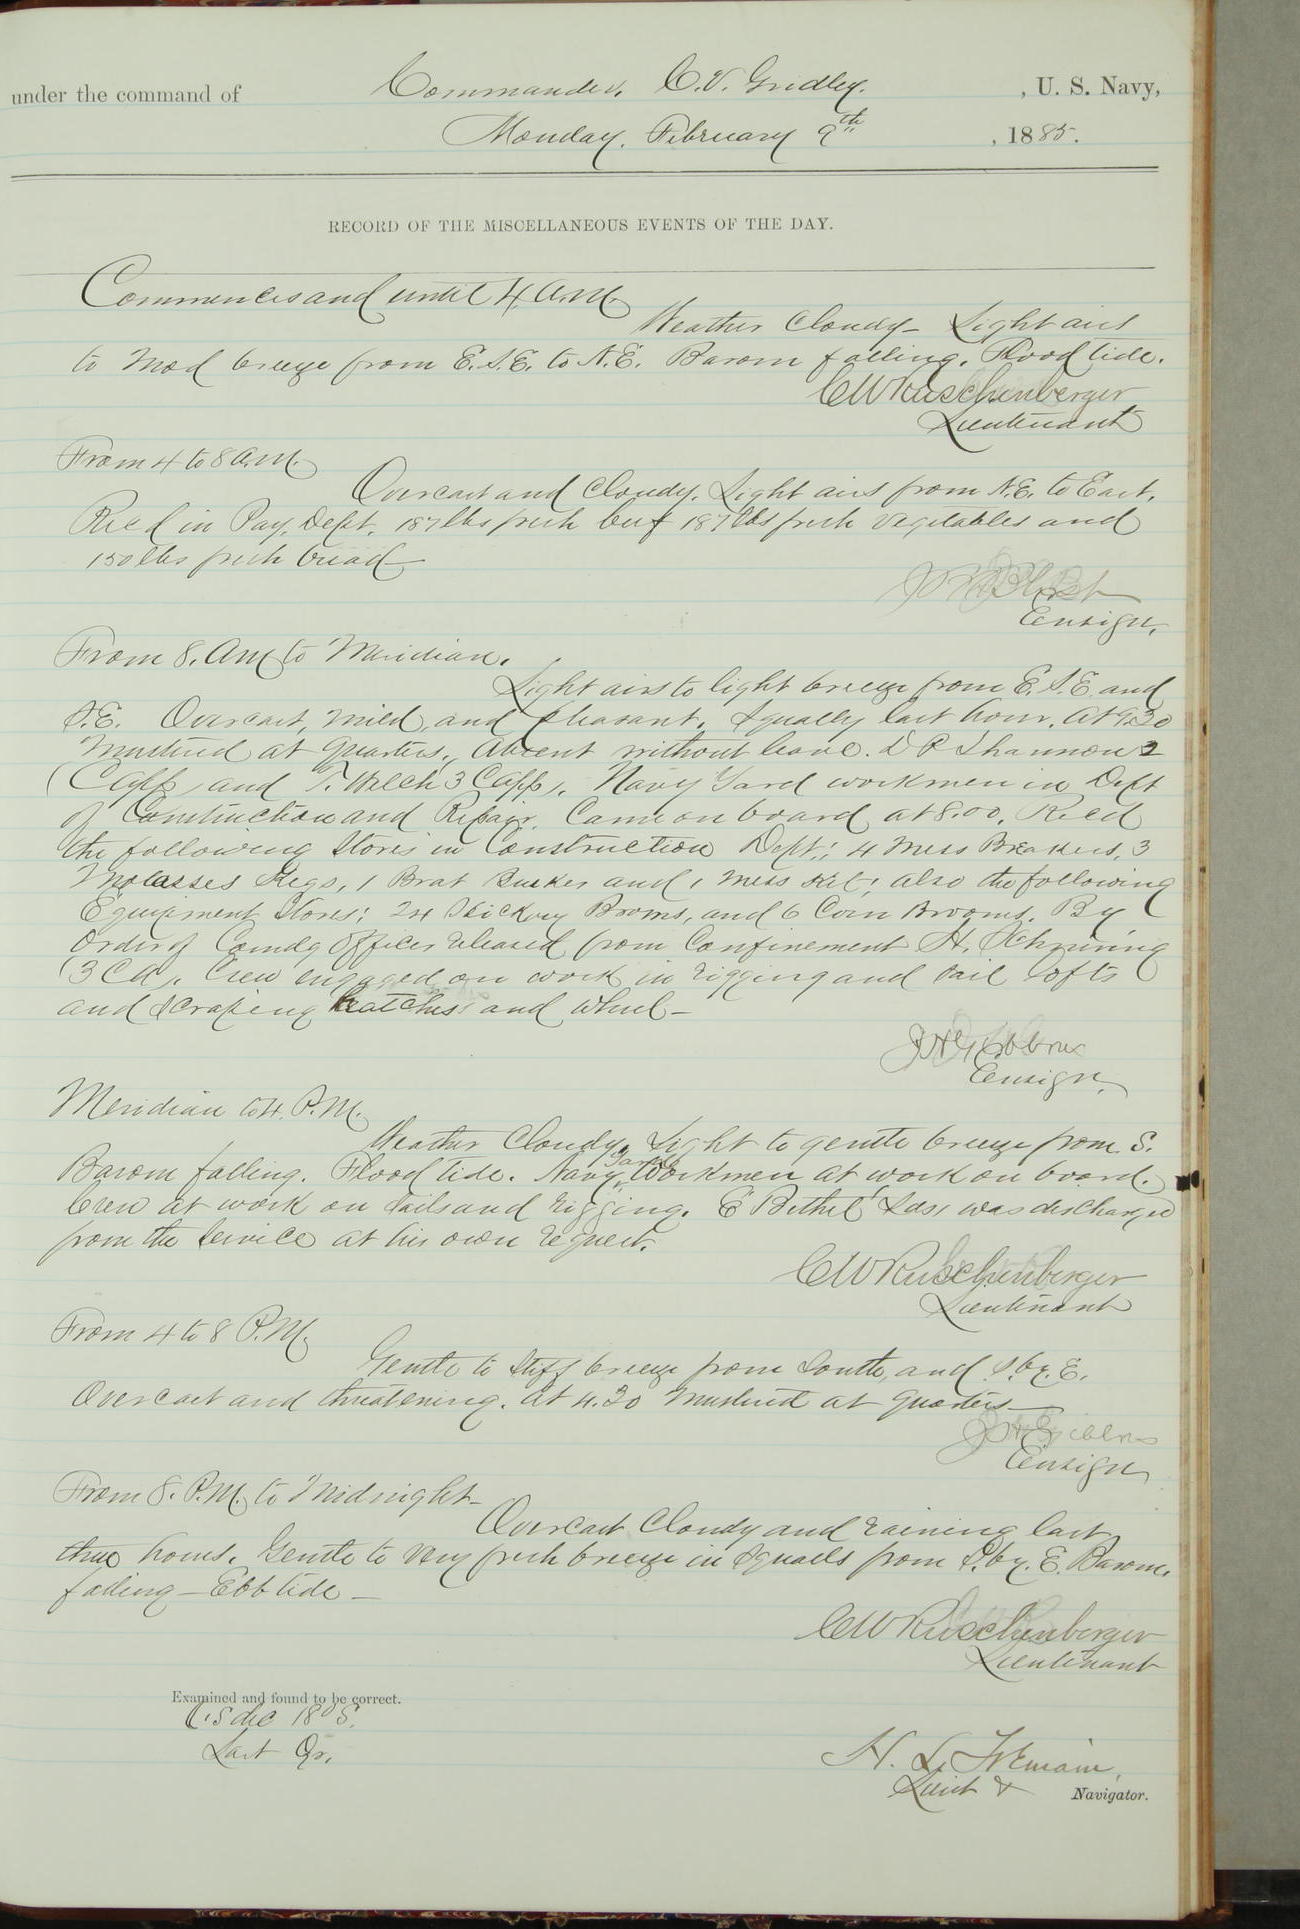 under the command of Commander, C. V. Gridley. , U. S. Navy,
Monday, February 9th , 1885.
RECORD OF THE MISCELLANEOUS EVENTS OF THE DAY.
Commences and until 4 A.M.
Weather Cloudy— Light airs
to Mod breeze from E.S.E. to N.E. Barom falling. Flood tide.
C W Ruschenberger
Lieutenant
From 4 to 8 A.M.
Overcast and cloudy. Light airs from N.E. to East.
Recd in Pay. Dept. 187 lbs fresh beef 187 lbs fresh vegetables and
150 lbs fresh bread—
Ensign.
From 8. AM to Meridian.
Light airs to light breeze from E.S.E. and
S.E. Overcast, mild, and pleasant. Squally last hour. At 9.30
mustered at Quarters, Absent without leave. D P Shannon 2
C app, and T. Welch 3 C app,. Navy Yard workmen in Dept
of Construction and Repair. Came on board at 8.00. Recd
the following Stores in Construction Dept: 4 Mess Breakers, 3
Molasses Kegs, 1 Boat Bucket and 1 Mess Kit; also the following
Equipment Stores: 24 Hickory Brooms, and 6 Corn Brooms. By
order of Comdg Officer released from Confinement H.
3 C a,. Crew engaged on work in rigging and sail lofts
and scraping hatches and wheel—
J H Gibbons
Ensign.
Meridian to 4. P.M.
Weather Cloudy. Light to gentle breeze from S.
Barom falling. Flood tide. Navy Yard Workmen at work on board.
Crew at work on sails and rigging. E Bethel Lds, was discharged
from the service at his own request.
C W Ruschenberger
Lieutenant
From 4 to 8 P.M.
Gentle to stiff breeze from South, and S. by. E.
Overcast and threatening. At 4.30 mustered at quarters—
J H Gibbons
Ensign
From 8. P.M. to Midnight—
Overcast Cloudy and raining last
three hours. Gentle to very fresh breeze in squalls from S. by. E. Barom.
falling—Ebb tide—
C W Ruschenberger
Lieutenant
Examined and found to be correct.
Last Qr.
H. L.
Lieut & Navigator.